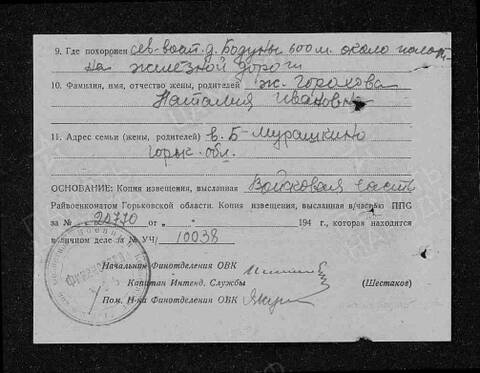 9. Где похоронен сев-вост. д. Бодуны 600 м. около полот-
на железной дороги
10. Фамилия, имя, отчество жены, родителей ж. Горохова
Наталия Ивановна
11. Адрес семьи (жены, родителей) в. Б-Мурашкино
Горьк. обл.
ОСНОВАНИЕ: Копия извещения, высланная Войсковая часть
Райвоенкоматом Горьковской области. Копия извещения, высланная в/частью ППС
за № 20770 от „ „ 194 г., которая находится
в личном деле за № УЧ/ 10038
Начальник Финотделения ОВК
Капитан Интенд. Службы (Шестаков)
Пом. Н-ка Финотделения ОВК